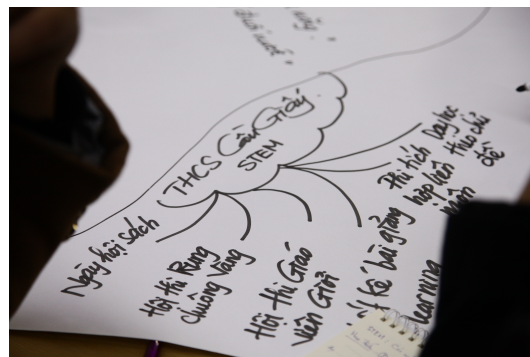 THCS Cầu Giấy
STEM
Ngày hội sách
Hội thi Rung
chuông vàng
Hội thi Giáo
viên Giỏi
kế bài giảng
learning
Thi tích
hợp liên
môn
Dạy học
theo chủ
đề